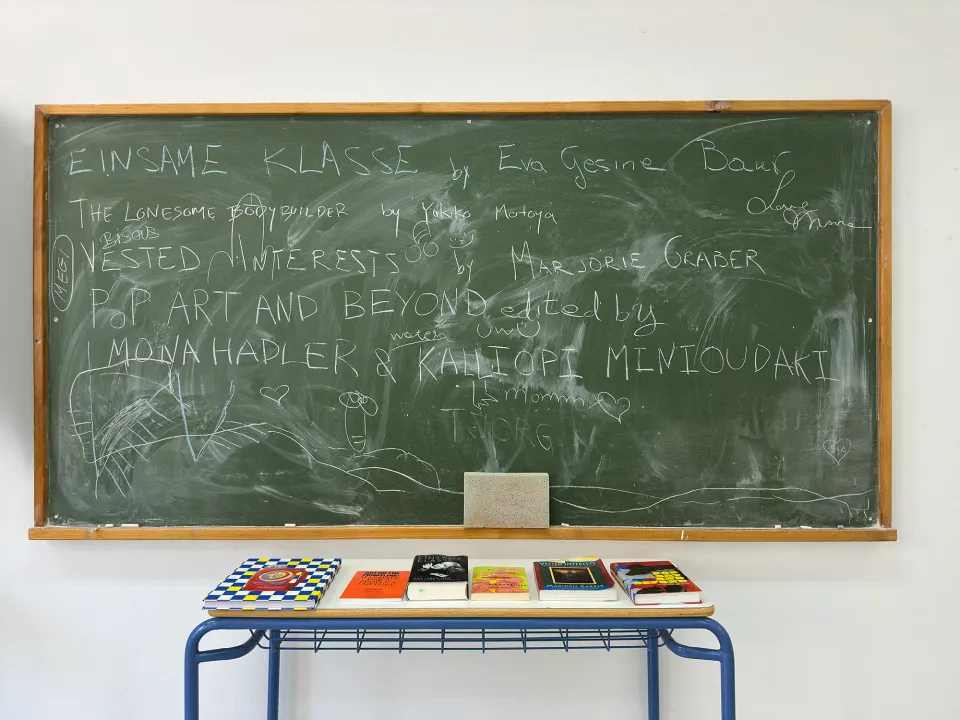 EINSAME KLASSE by Eva Gesine Baur
THE LONESOME BODYBUILDER by Yukiko Motoya
Love
Mona
BISOUS
MEGI
VESTED INTERESTS by MARJORIE GRABER
POP ART AND BEYOND edited by
UwU
MONA HADLER & KALLIOPI MINIOUDAKI
VESTED INTERESTS
MARJORIE GARBER